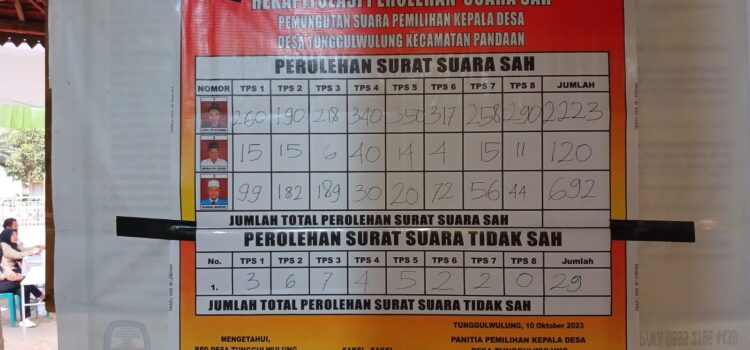 REKAPITULASI PEROLEHAN SUARA SAH
PEMUNGUTAN SUARA PEMILIHAN KEPALA DESA
DESA TUNGGULWULUNG KECAMATAN PANDAAN
PEROLEHAN SURAT SUARA SAH
NOMOR TPS 1 TPS 2 TPS 3 TPS 4 TPS 5 TPS 6 TPS 7 TPS 8 JUMLAH
260 190 218 340 350 317 258 290 2223
15 15 6 40 14 4 15 11 120
99 182 189 30 20 72 56 44 692
JUMLAH TOTAL PEROLEHAN SURAT SUARA SAH
PEROLEHAN SURAT SUARA TIDAK SAH
No. TPS 1 TPS 2 TPS 3 TPS 4 TPS 5 TPS 6 TPS 7 TPS 8 Jumlah
1. 3 6 7 4 5 2 2 0 29
JUMLAH TOTAL PEROLEHAN SURAT SUARA TIDAK SAH
TUNGGULWULUNG, 10 Oktober 2023
MENGETAHUI, PANITIA PEMILIHAN KEPALA DESA
BPD DESA TUNGGULWULUNG SAKSI - SAKSI DESA TUNGGULWULUNG